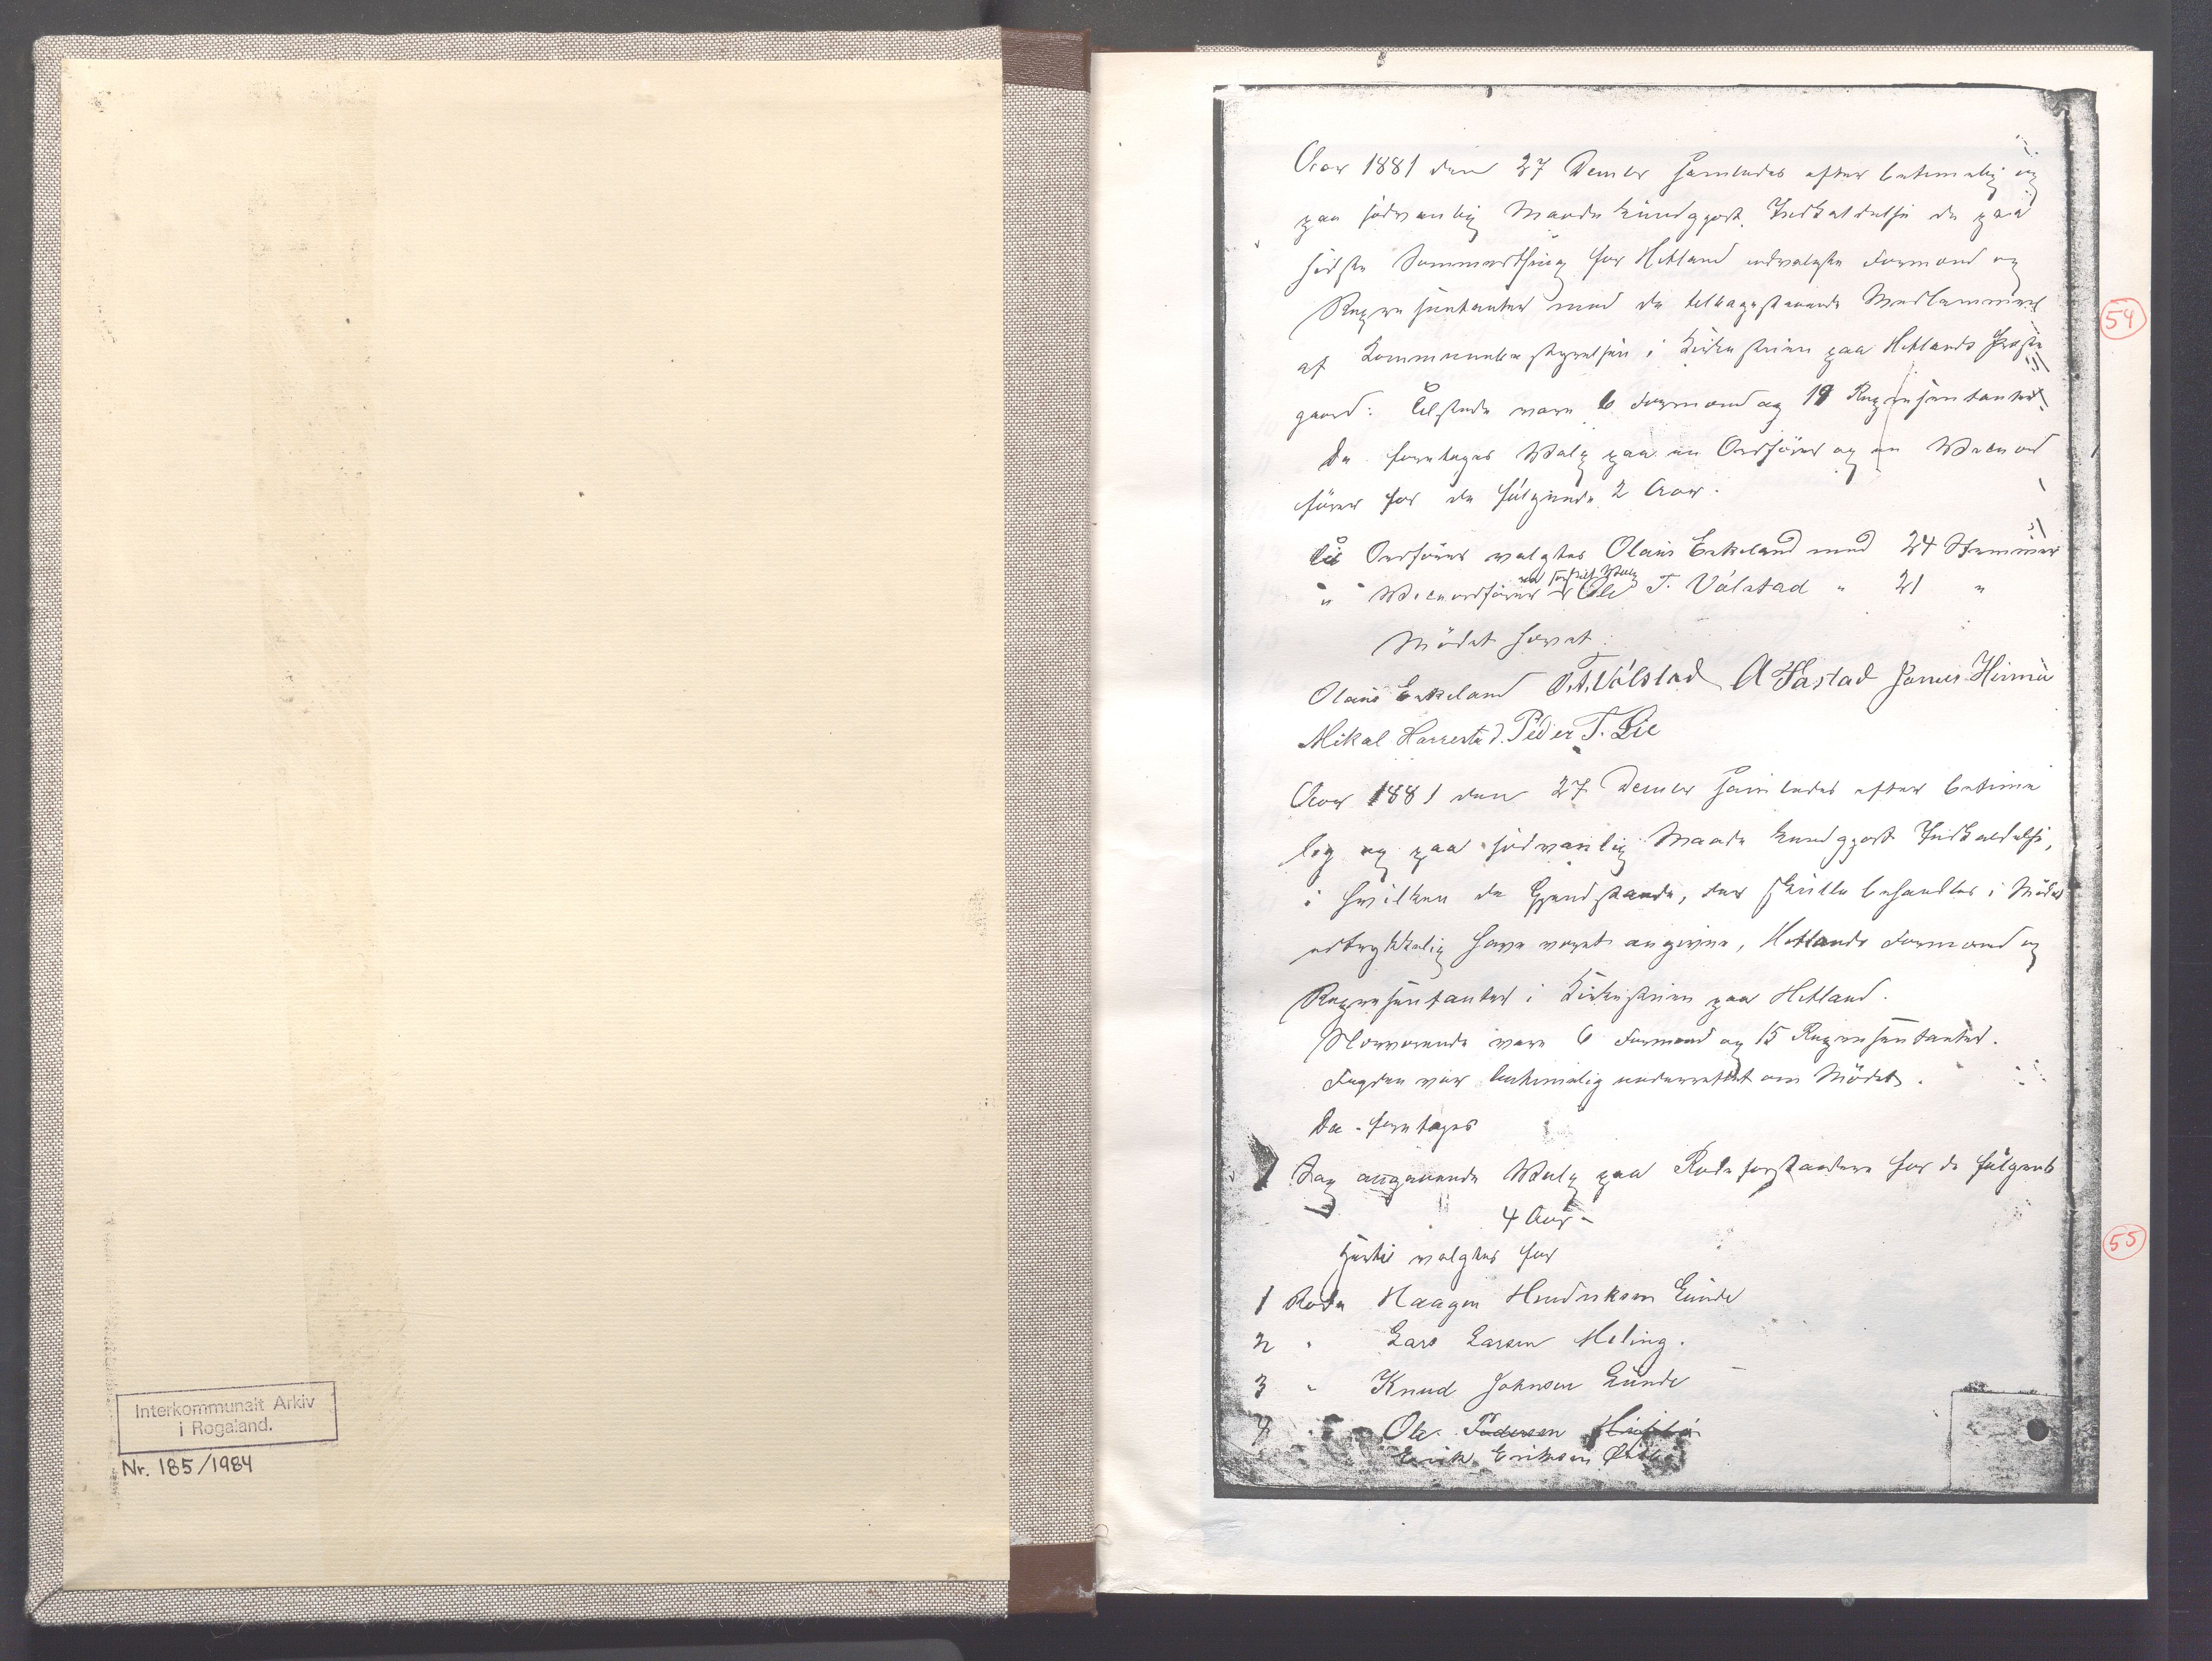 Interkommunalt Arkiv
i Rogaland.
Nr. 185/1984
Aar 1881 den 27 Decmbr samledes efter betimelig og
paa sædvanlig Maade kundgjort Indkaldelse de paa
sidste Sommerthing for Hetland udvalgte Formænd og
Repræsentanter med de tilbagestaaende Medlemmer
af Kommunebestyrelsen i Kirkestuen paa Hetlands Præste
gaard: Tilstede vare 6 Formænd og 19 Repræsentanter
Da foretoges Valg paa en Ordfører og en Viceord
fører for de følgende 2 Aar.
Til Ordfører valgtes Olaus Eskeland med 24 Stemmer
" " Viceordfører Ole T. Válstad " 21 "
Mødet hævet.
Olaus Eskeland O.T. Vålstad A Tastad Jonas Hinna
Mikal Harrestad. Peder T. Lie
54
Aar 1881 den 27 Decmbr samledes efter betime
lig og paa sædvanlig Maade kundgjort Indkaldelse,
i hvilken de Gjenstande, der skulle behandles i Mødet
udtrykkelig have været angivne, Hetlands Formænd og
Repræsentanter i Kirkestuen paa Hetland.
Nærværende vare 6 Formænd og 15 Repræsentanter.
Fogden var betimelig underrettet om Mødet.
Da foretoges
1 Sag angaaende Valg paa Rodeforstandere for de følgende
4 Aar -
Hertil valgtes for
55
1 Rode Haagen Hendriksen Lunde
2 " Lars Larsen Meling.
3 " Knud Johnsen Lunde
4 " Ole Pedersen
Erik Eriksen